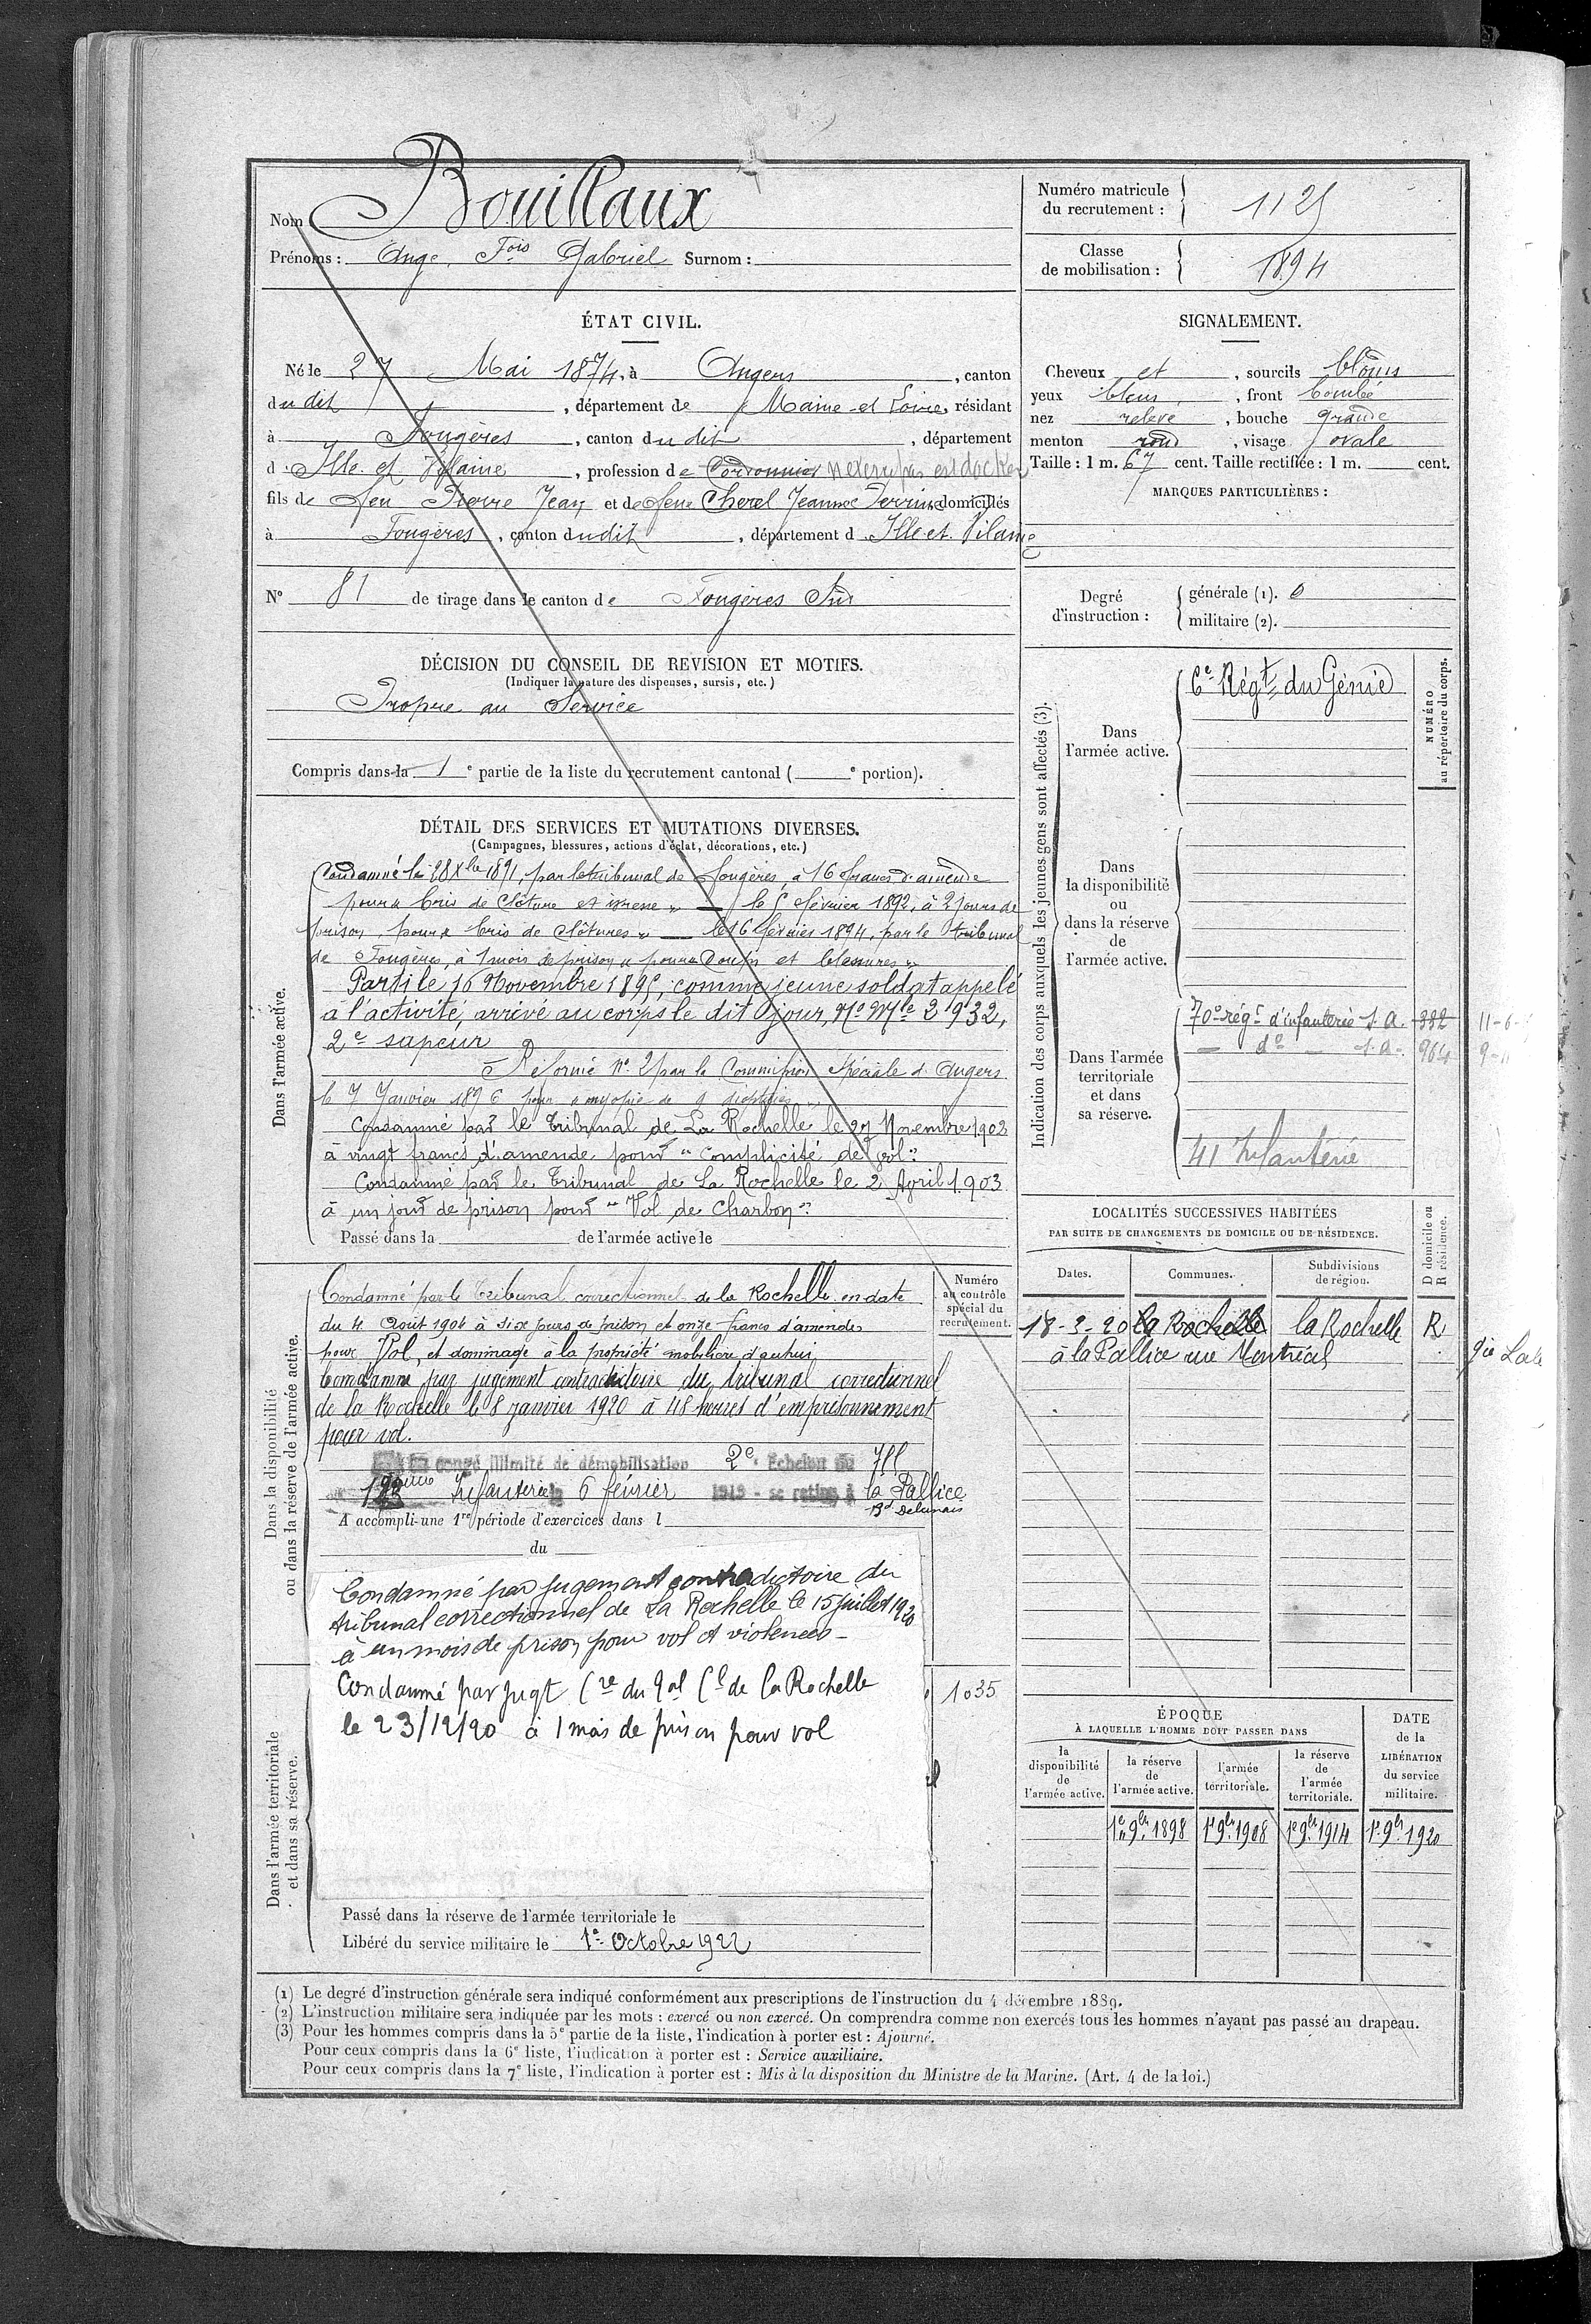 Nom Bouillaux
Prénoms : Ange, Fois Gabriel Surnom :
Numéro matricule du recrutement : 1125
Classe de mobilisation : 1894
ÉTAT CIVIL.
Né le 27 Mai 1874, à Angers, canton
du dit, département de Maine-et-Loire, résidant
à Fougères, canton du dit, département
d. Ille et Vilaine, profession de Cordonnier n'exerce pas est docker
fils de feu Pierre Jean et de feue Cherel Jeanne Perrine domiciliés
à Fougères, canton du dit, département d. Ille et Vilaine
N° 81 de tirage dans le canton de Fougères Sud
SIGNALEMENT.
Cheveux et, sourcils blonds
yeux bleus, front bombé
nez relevé, bouche grande
menton rond, visage ovale
Taille : 1 m. 67 cent. Taille rectifiée : 1 m. cent.
MARQUES PARTICULIÈRES :
Degré d'instruction : générale (1). 0
militaire (2).
DÉCISION DU CONSEIL DE REVISION ET MOTIFS.
(Indiquer la nature des dispenses, sursis, etc.)
Propre au Service
Compris dans la 1e partie de la liste du recrutement cantonal ( e portion).
DÉTAIL DES SERVICES ET MUTATIONS DIVERSES.
(Campagnes, blessures, actions d'éclat, décorations, etc.)
Dans l'armée active.
Condamné le 28 Xbre 1891, par le tribunal de Fougères, à 16 francs d'amende
pour « bris de clôture et ivresse » — le 5 février 1892, à 2 jours de
prison, pour « bris de clôtures » — le 16 février 1894, par le tribunal
de Fougères, à 1 mois de prison « pour « Coups et blessures »
Parti le 16 Novembre 1895, comme jeune soldat appelé
à l'activité, arrivé au corps le dit jour, No Mle 2932,
2e sapeur
Réformé No 2 par la Commission Spéciale d'Angers
le 7 Janvier 1896 pour « myopie de 9 dioptries »
Condamné par le Tribunal de La Rochelle le 27 Novembre 1902
à vingt francs d'amende pour "complicité de vol"
Condamné par le Tribunal de La Rochelle le 2 Avril 1903
à un jour de prison pour "Vol de Charbon"
Passé dans la de l'armée active le
Indication des corps auxquels les jeunes gens sont affectés (3).
NUMÉRO au répertoire du corps.
Dans l'armée active.
6e Régt du Génie
Dans la disponibilité ou dans la réserve de l'armée active.
Dans l'armée territoriale et dans sa réserve.
70e régt d'infanterie S.A. 332 11-6-
— do — S.A. 964
41 Infanterie
Dans la disponibilité ou dans la réserve de l'armée active.
Numéro au contrôle spécial du recrutement.
Condamné par le Tribunal correctionnel de la Rochelle en date
du 4 Août 1904 à six jours de prison et onze francs d'amende
pour Vol, et dommage à la propriété mobilière d'autrui
Condamné par jugement contradictoire du tribunal correctionnel
de la Rochelle le 8 janvier 1920 à 48 heures d'emprisonnement
pour vol.
congé illimité de démobilisation 2e Echelon du
Infanterie le 6 février 1919 - se retire à la Pallice
Bd Delmas
A accompli une 1re période d'exercices dans l
du
Condamné par jugement contradictoire du
tribunal correctionnel de La Rochelle le 15 juillet 1920
à un mois de prison pour vol et violences -
Condamné par jugt Cre du Tal Cl de la Rochelle
le 23/12/20 à 1 mois de prison pour vol
1035
Dans l'armée territoriale et dans sa réserve.
Passé dans la réserve de l'armée territoriale le
Libéré du service militaire le 1er Octobre 1922
LOCALITÉS SUCCESSIVES HABITÉES
PAR SUITE DE CHANGEMENTS DE DOMICILE OU DE RÉSIDENCE.
D domicile ou R résidence.
Dates. Communes. Subdivisions de région.
18-3-20 la Rochelle la Rochelle R
à la Pallice rue Montréal
ÉPOQUE
À LAQUELLE L'HOMME DOIT PASSER DANS
DATE de la LIBÉRATION du service militaire.
la disponibilité de l'armée active.
la réserve de l'armée active.
l'armée territoriale.
la réserve de l'armée territoriale.
1er 9bre 1898 1er 9bre 1908 1er 9bre 1914 1er 9bre 1920
(1) Le degré d'instruction générale sera indiqué conformément aux prescriptions de l'instruction du 4 décembre 1889.
(2) L'instruction militaire sera indiquée par les mots : exercé ou non exercé. On comprendra comme non exercés tous les hommes n'ayant pas passé au drapeau.
(3) Pour les hommes compris dans la 5e partie de la liste, l'indication à porter est : Ajourné.
Pour ceux compris dans la 6e liste, l'indication à porter est : Service auxiliaire.
Pour ceux compris dans la 7e liste, l'indication à porter est : Mis à la disposition du Ministre de la Marine. (Art. 4 de la loi.)